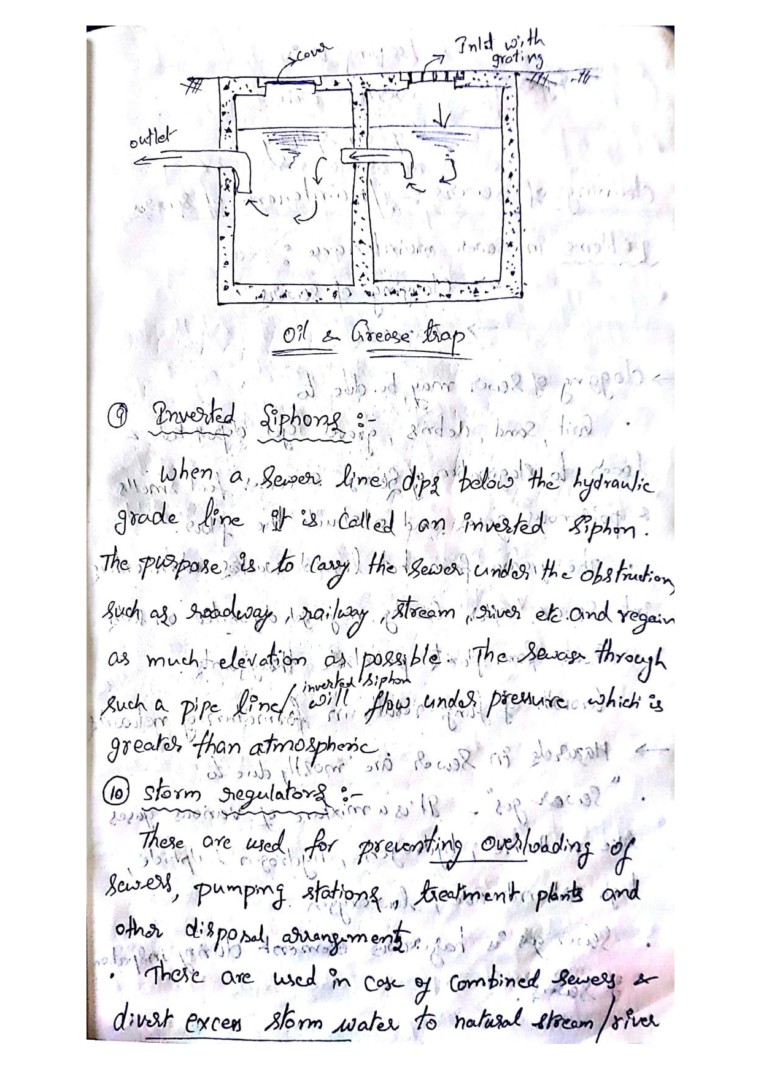 cover
Inlet with
grating
outlet
Oil & Grease trap
⑨ Inverted Siphons :-
When a sewer line dips below the hydraulic
grade line it is called an inverted siphon.
The purpose is to carry the sewer under the obstruction
such as roadway, railway, stream, river etc and regain
as much elevation as possible. The sewage through
such a pipe line/inverted siphon will flow under pressure which is
greater than atmospheric.
⑩ Storm regulators :-
These are used for preventing overloading of
sewers, pumping stations, treatment plants and
other disposal arrangements
• These are used in case of combined sewers &
divert excess storm water to natural stream/river